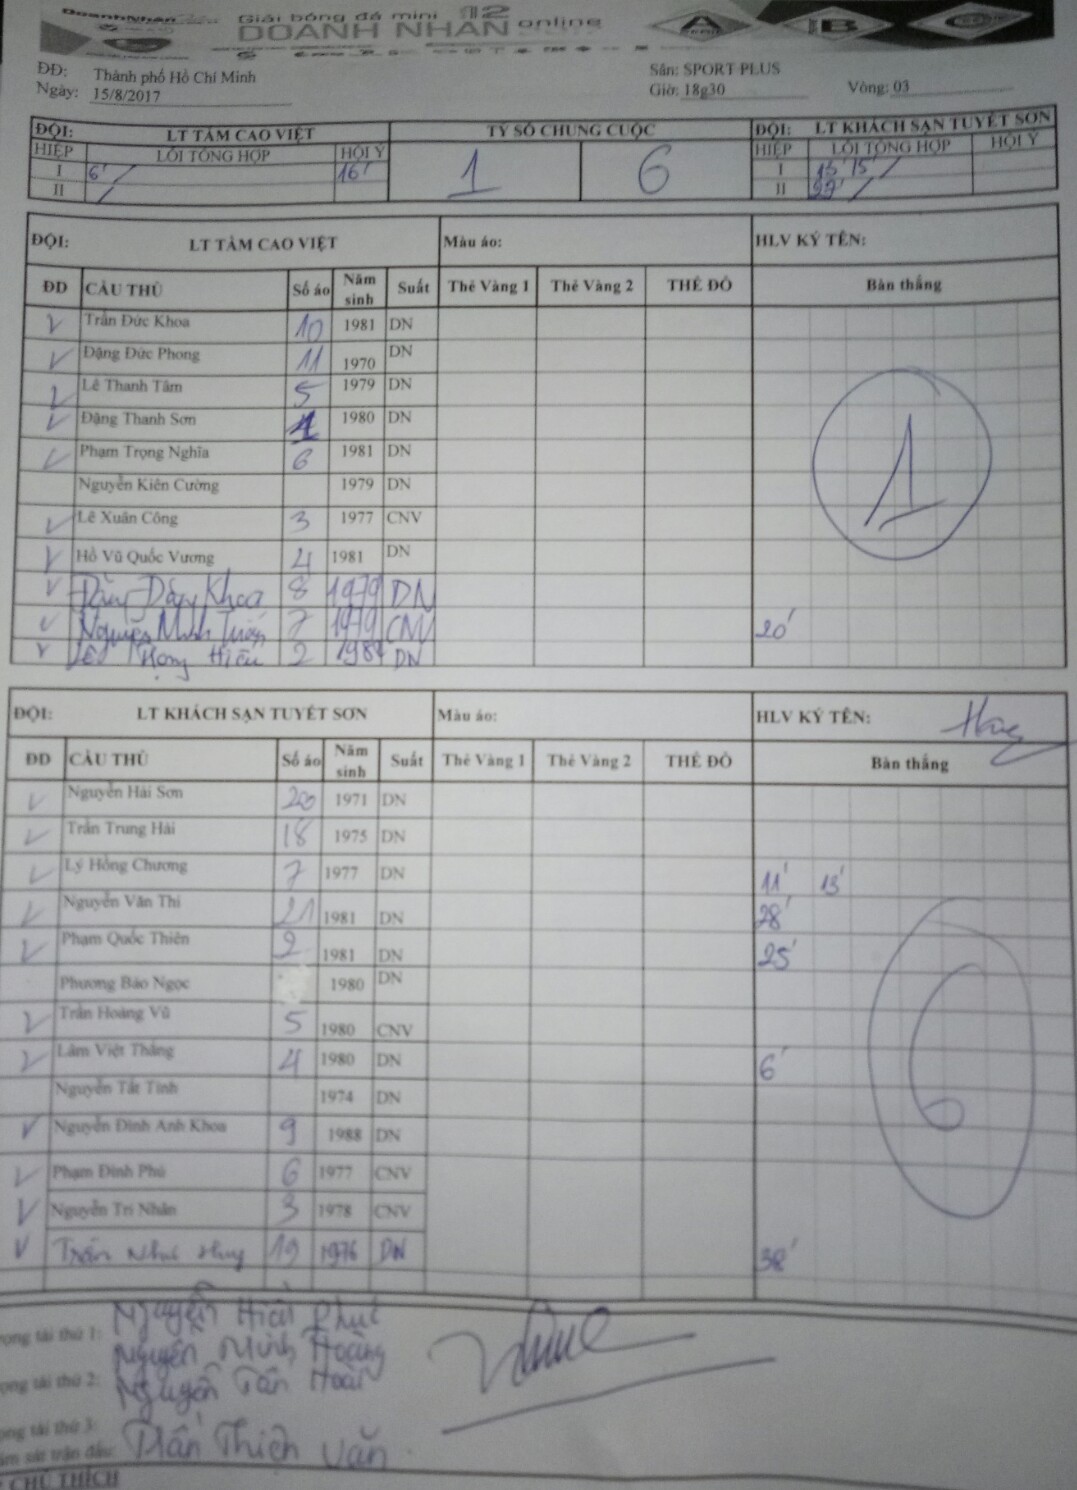 Giải bóng đá mini 12
DOANH NHÂN online
A B C
ĐĐ: Thành phố Hồ Chí Minh Sân: SPORT PLUS
Ngày: 15/8/2017 Giờ: 18g30 Vòng: 03
ĐỘI: LT TÂM CAO VIỆT TỶ SỐ CHUNG CUỘC ĐỘI: LT KHÁCH SẠN TUYẾT SƠN
HIỆP LỖI TỔNG HỢP HỘI Ý 1 6 HIỆP LỖI TỔNG HỢP HỘI Ý
I 6' 16' I 15'
II II
ĐỘI: LT TÂM CAO VIỆT Màu áo: HLV KÝ TÊN:
ĐD CẦU THỦ Số áo Năm sinh Suất Thẻ Vàng 1 Thẻ Vàng 2 THẺ ĐỎ Bàn thắng
Trần Đức Khoa 10 1981 DN
Đặng Đức Phong 11 1970 DN
Lê Thanh Tâm 5 1979 DN
Đặng Thanh Sơn 1 1980 DN
Phạm Trọng Nghĩa 6 1981 DN
Nguyễn Kiên Cường 1979 DN
Lê Xuân Công 3 1977 CNV
Hồ Vũ Quốc Vương 4 1981 DN
Khoa 8 1979 DN
Nguyễn Minh 7 1979 CNV 20'
Lê Trọng Hiếu 2 DN
1
ĐỘI: LT KHÁCH SẠN TUYẾT SƠN Màu áo: HLV KÝ TÊN:
ĐD CẦU THỦ Số áo Năm sinh Suất Thẻ Vàng 1 Thẻ Vàng 2 THẺ ĐỎ Bàn thắng
Nguyễn Hải Sơn 20 1971 DN
Trần Trung Hải 18 1975 DN
Lý Hồng Chương 7 1977 DN 11' 13'
Nguyễn Văn Thi 21 1981 DN 28'
Phạm Quốc Thiên 2 1981 DN 25'
Phương Bảo Ngọc 1980 DN
Trần Hoàng Vũ 5 1980 CNV
Lâm Việt Thắng 4 1980 DN 6'
Nguyễn Tất Tính 1974 DN
Nguyễn Đình Anh Khoa 9 1988 DN
Phạm Đình Phú 6 1977 CNV
Nguyễn Trí Nhân 3 1978 CNV
Trần Như Huy 19 1976 DN 38'
6
ọng tài thứ 1: Nguyễn Phúc
Nguyễn Minh Hoàng
ọng tài thứ 2: Nguyễn Tấn Hoài
ọng tài thứ 3:
ám sát trận đấu: Trần Thiện Văn
CHÚ THÍCH